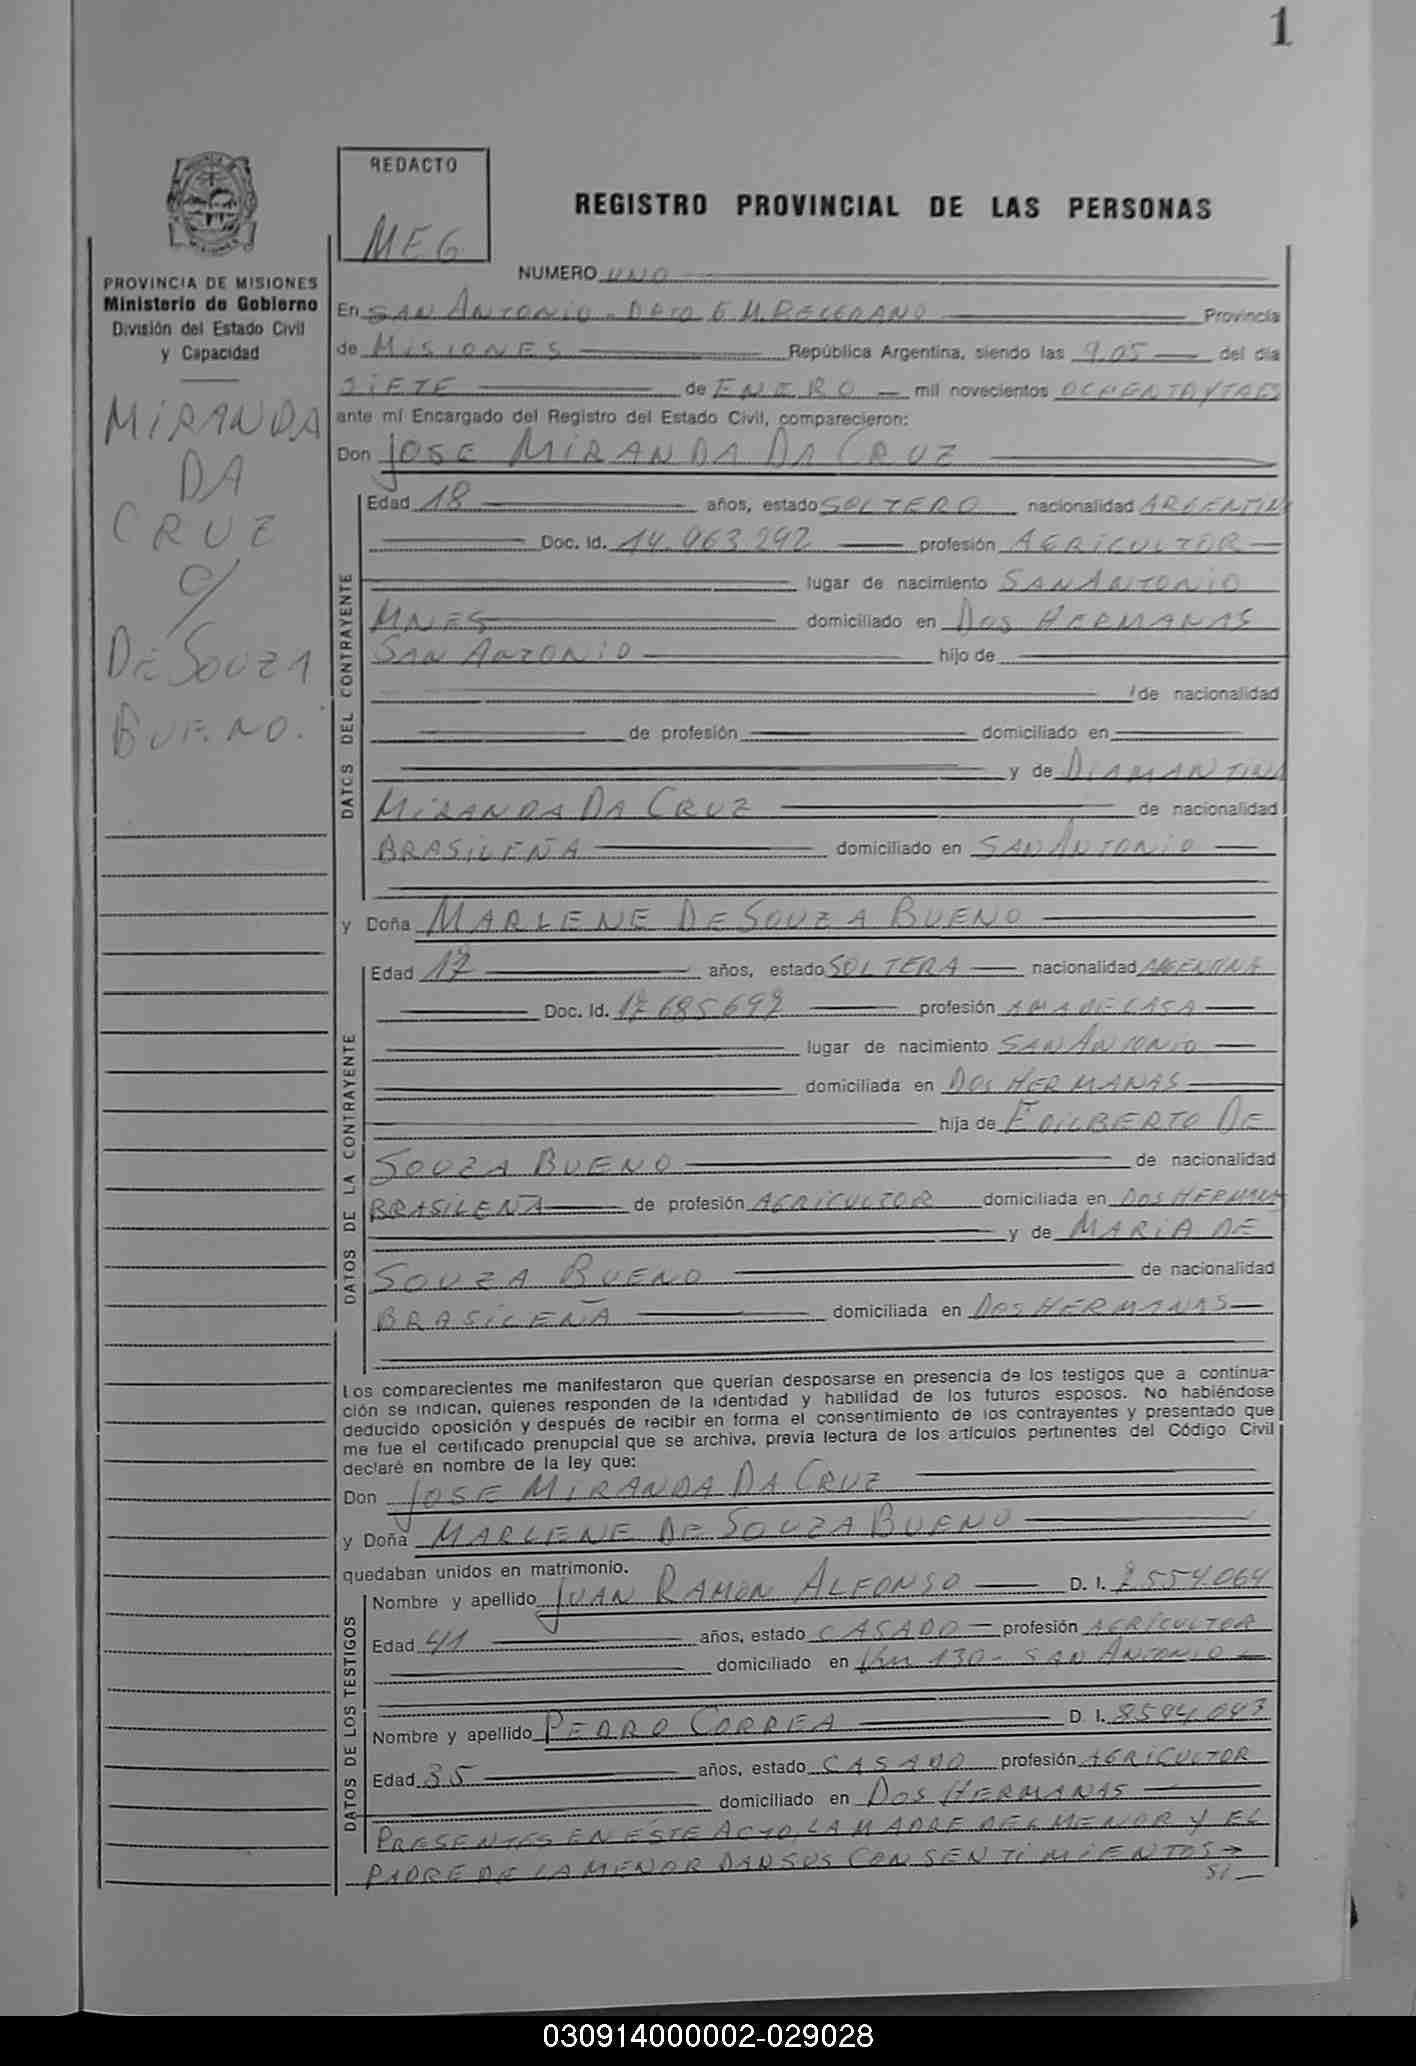 1
REDACTO
MEG
REGISTRO PROVINCIAL DE LAS PERSONAS
NUMERO UNO
PROVINCIA DE MISIONES
Ministerio de Gobierno
División del Estado Civil
y Capacidad
MIRANDA
DA
CRUZ
c/
DE SOUZA
BUENO.
En SAN ANTONIO - DPTO G.M. BELGRANO Provincia
de MISIONES República Argentina, siendo las 9,05 del día
SIETE de ENERO mil novecientos OCHENTA Y TRES
ante mí Encargado del Registro del Estado Civil, comparecieron:
Don JOSE MIRANDA DA CRUZ
DATOS DEL CONTRAYENTE
Edad 18 años, estado SOLTERO nacionalidad ARGENTINA
Doc. Id. 14.963.292 profesión AGRICULTOR
lugar de nacimiento SAN ANTONIO
MNES domiciliado en DOS HERMANAS
SAN ANTONIO hijo de
de nacionalidad
de profesión domiciliado en
y de DIAMANTINA
MIRANDA DA CRUZ de nacionalidad
BRASILEÑA domiciliado en SAN ANTONIO
y Doña MARLENE DE SOUZA BUENO
DATOS DE LA CONTRAYENTE
Edad 17 años, estado SOLTERA nacionalidad ARGENTINA
Doc. Id. profesión AMA DE CASA
lugar de nacimiento SAN ANTONIO
domiciliada en DOS HERMANAS
hija de EDILBERTO DE
SOUZA BUENO de nacionalidad
BRASILEÑA de profesión AGRICULTOR domiciliada en DOS HERMANAS
y de MARIA DE
SOUZA BUENO de nacionalidad
BRASILEÑA domiciliada en DOS HERMANAS
Los comparecientes me manifestaron que querían desposarse en presencia de los testigos que a continua-
ción se indican, quienes responden de la identidad y habilidad de los futuros esposos. No habiéndose
deducido oposición y después de recibir en forma el consentimiento de los contrayentes y presentado que
me fue el certificado prenupcial que se archiva, previa lectura de los artículos pertinentes del Código Civil
declaré en nombre de la ley que:
Don JOSE MIRANDA DA CRUZ
y Doña MARLENE DE SOUZA BUENO
quedaban unidos en matrimonio.
DATOS DE LOS TESTIGOS
Nombre y apellido JUAN RAMON ALFONSO D. I. 7.554.064
Edad 41 años, estado CASADO profesión AGRICULTOR
domiciliado en Km 130 - SAN ANTONIO
Nombre y apellido PEDRO CORREA D. I.
Edad 35 años, estado CASADO profesión AGRICULTOR
domiciliado en DOS HERMANAS
PRESENTES EN ESTE ACTO, LA MADRE DEL MENOR Y EL
PADRE DE LA MENOR DAN SUS CONSENTIMIENTOS
030914000002-029028